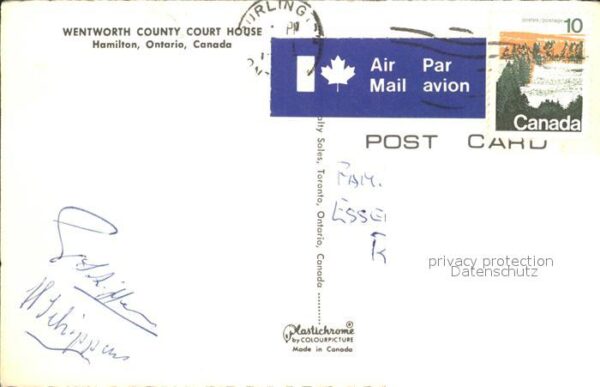 WENTWORTH COUNTY COURT HOUSE
Hamilton, Ontario, Canada
PM
Air Mail
Par avion
postes/postage
10
Canada
POST CARD
alty Sales, Toronto, Ontario, Canada
FAM.
ESSE
R
privacy protection
Datenschutz
W Schippers
Plastichrome®
by COLOURPICTURE
Made in Canada